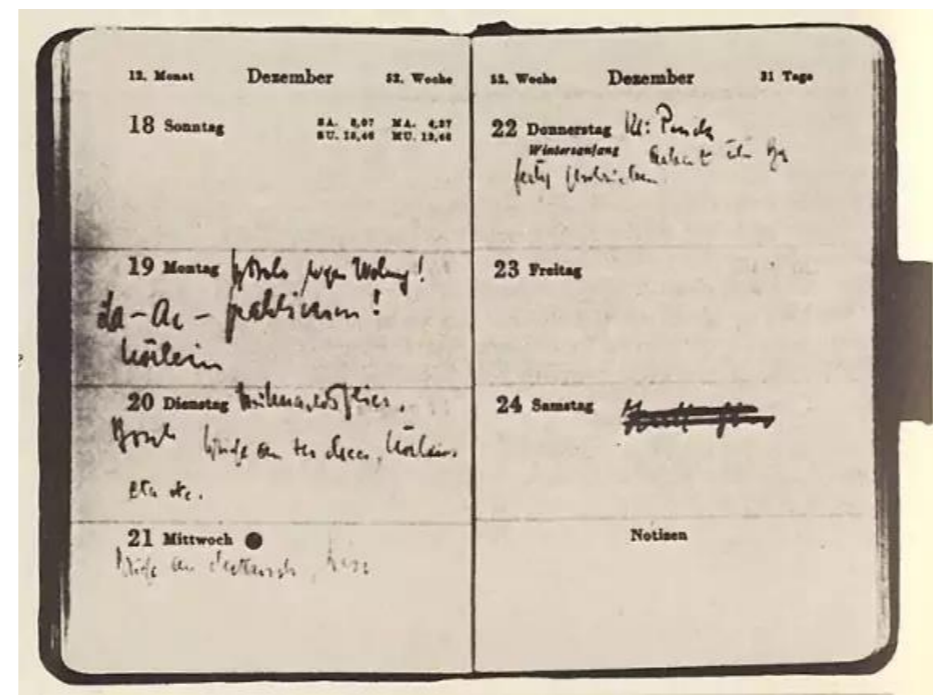 12. Monat Dezember 52. Woche
18 Sonntag SA. 8,07 MA. 4,27
SU. 15,46 MU. 13,46
19 Montag wegen Wohnung!
La-Ac-fraktionen!
Hörlein
20 Dienstag Weihnachtsfeier.
Bosch Briefe an ter Meer, Hörlein,
etc etc.
21 Mittwoch
Briefe an
52. Woche Dezember 31 Tage
22 Donnerstag
Wintersanfang Arbeit üb Ba
fertig geschrieben.
23 Freitag
24 Samstag
Notizen